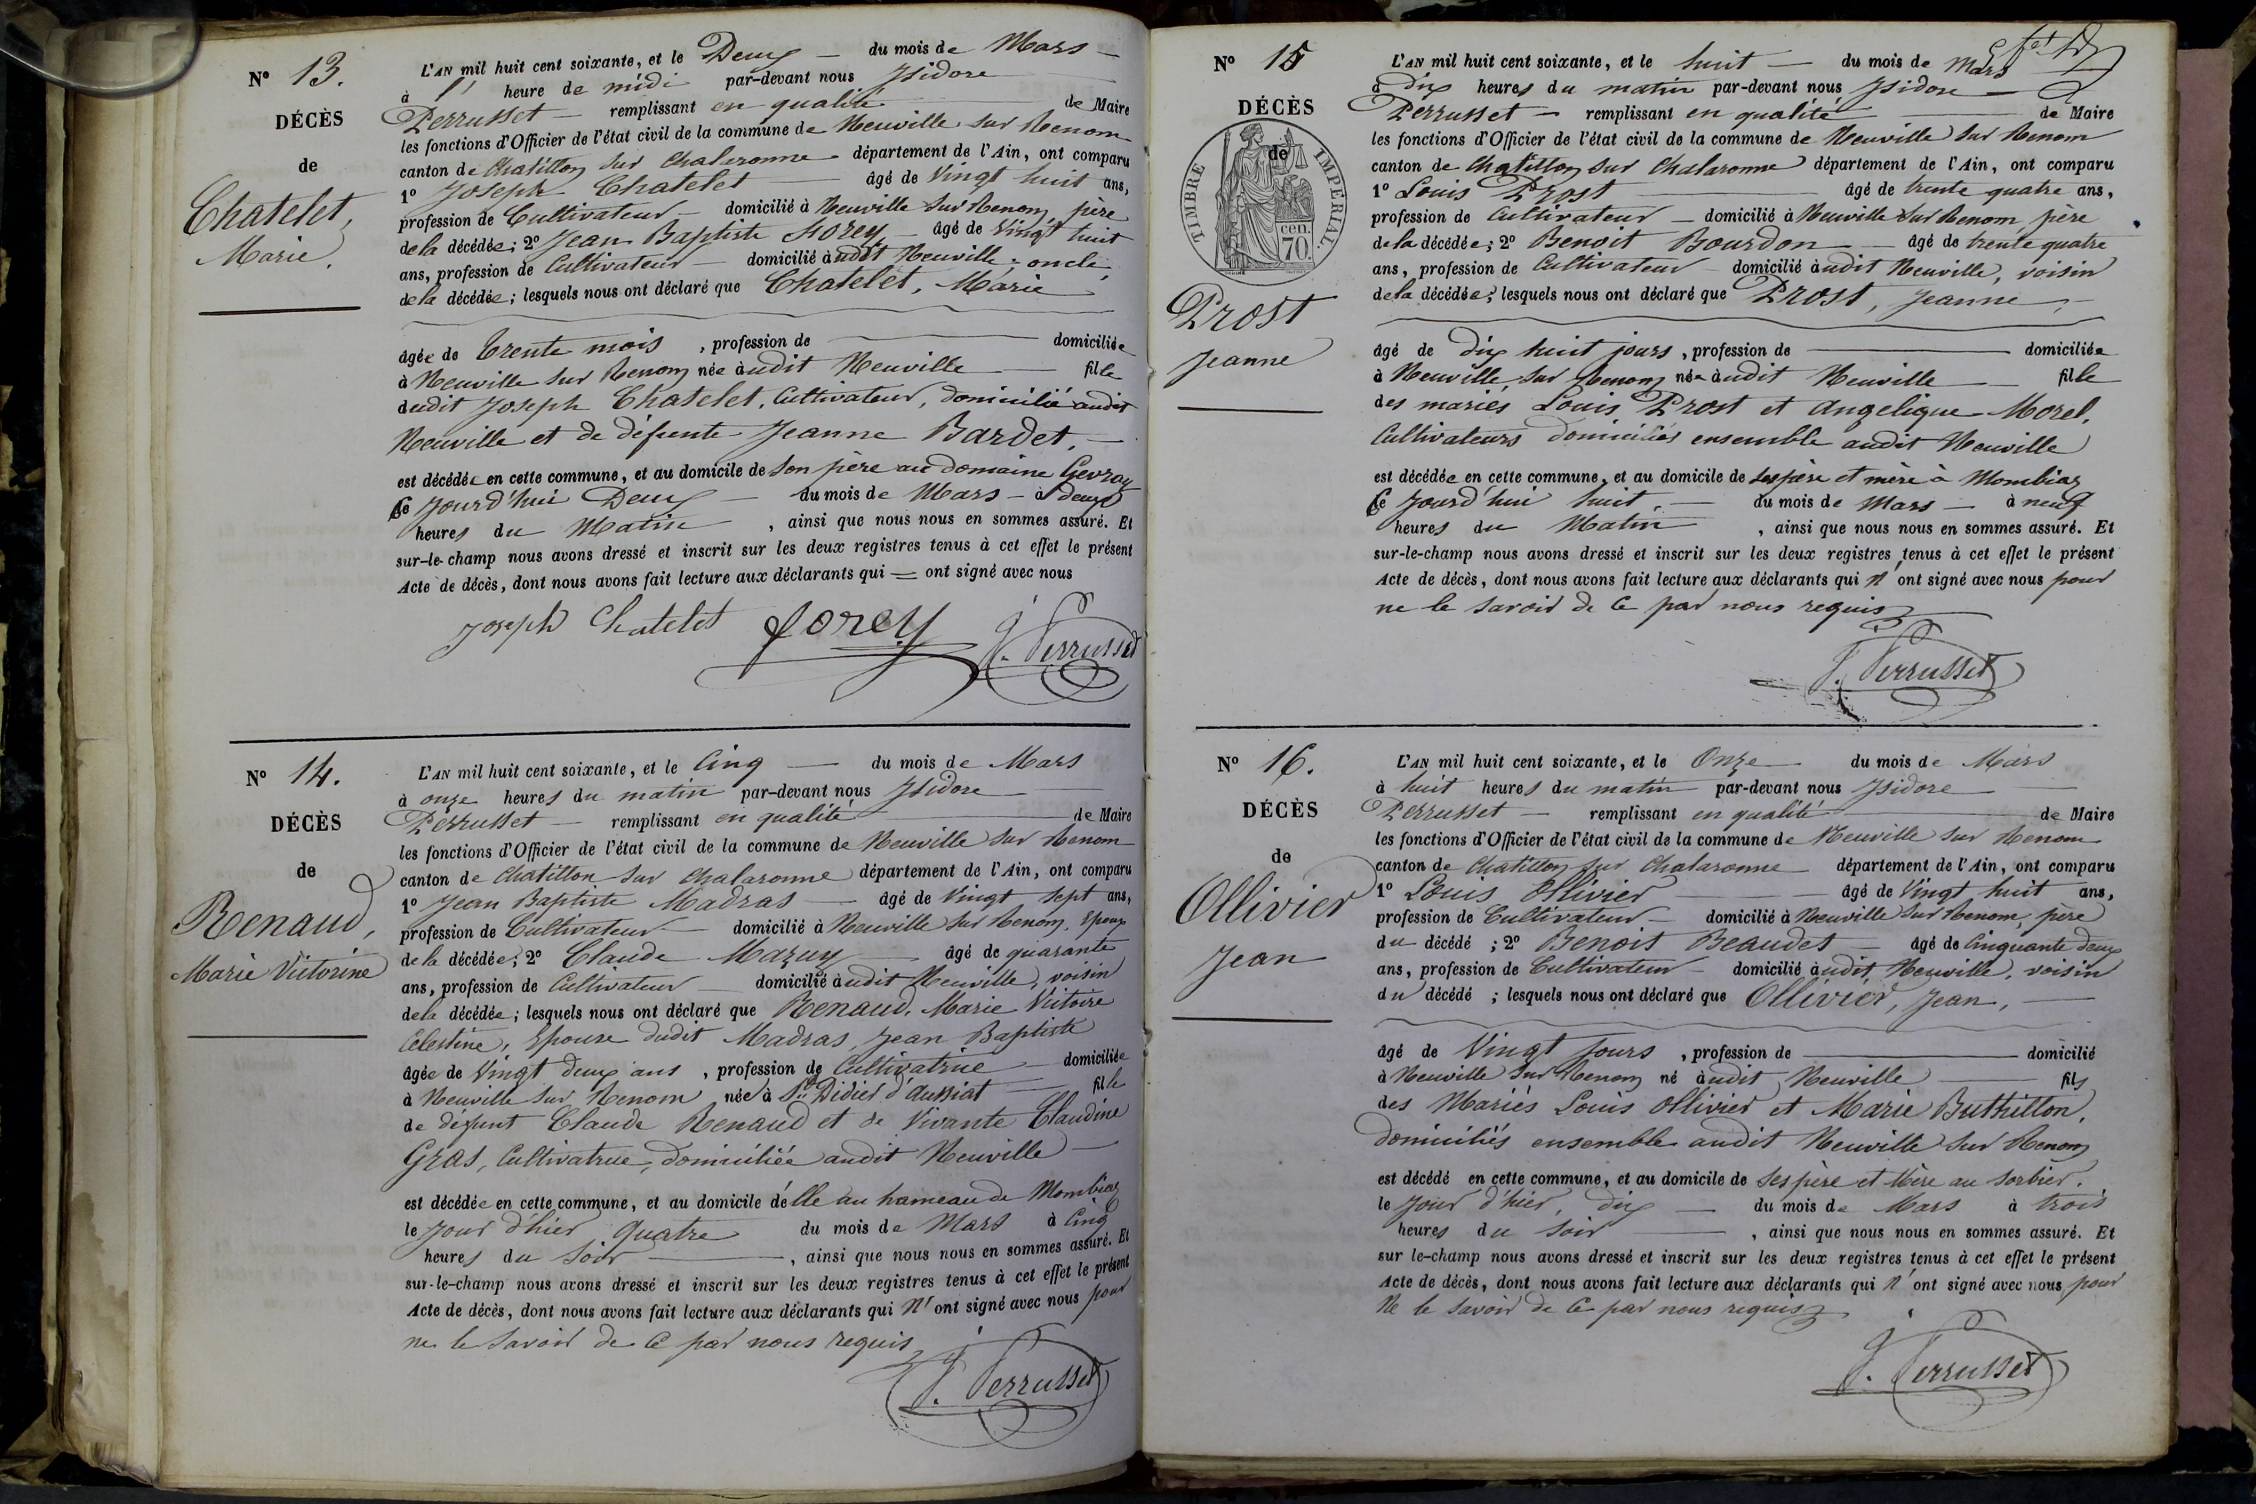 N° 13.
DÉCÈS
de
Chatelet,
Marie.
L'AN mil huit cent soixante, et le Deux — du mois de Mars —
à 1' heure de midi par-devant nous Isidore
Perrusset — remplissant en qualité de Maire
les fonctions d'Officier de l'état civil de la commune de Neuville sur Renom
canton de Chatillon sur Chalaronne département de l'Ain, ont comparu
1° Joseph Chatelet âgé de Vingt huit ans,
profession de Cultivateur — domicilié à Neuville sur Renom, père
de la décédée; 2° Jean Baptiste Forey — âgé de Vingt huit
ans, profession de Cultivateur — domicilié àudit Neuville, oncle,
de la décédée; lesquels nous ont déclaré que Chatelet, Marie
âgée de trente mois, profession de — domiciliée
à Neuville sur Renom née àudit Neuville — fille
dudit Joseph Chatelet, Cultivateur, domicilié audit
Neuville et de défunte Jeanne Bardet, —
est décédée en cette commune, et au domicile de son père au domaine Gevray
Ce Jourd'hui Deux — du mois de Mars — à deux
heures du Matin, ainsi que nous nous en sommes assuré. Et
sur-le-champ nous avons dressé et inscrit sur les deux registres tenus à cet effet le présent
Acte de décès, dont nous avons fait lecture aux déclarants qui = ont signé avec nous
Joseph Chatelet forey J. Perrusset
N° 14.
DÉCÈS
de
Renaud,
Marie Victorine
L'AN mil huit cent soixante, et le Cinq — du mois de Mars
à onze heures du matin par-devant nous Isidore
Perrusset — remplissant en qualité de Maire
les fonctions d'Officier de l'état civil de la commune de Neuville sur Renom
canton de Chatillon sur Chalaronne département de l'Ain, ont comparu
1° Jean Baptiste Madras — âgé de Vingt sept ans,
profession de Cultivateur — domicilié à Neuville sur Renom, Epoux
de la décédée; 2° Claude Mazuy — âgé de quarante
ans, profession de Cultivateur — domicilié àudit Neuville, voisin
de la décédée; lesquels nous ont déclaré que Renaud, Marie Victoire
Célestine, Epouse dudit Madras, Jean Baptiste
âgée de Vingt deux ans, profession de Cultivatrice — domiciliée
à Neuville sur Renom née à St Didier d'aussiat — fille
de défunt Claude Renaud et de Vivante Claudine
Gras, Cultivatrice, domiciliée audit Neuville —
est décédée en cette commune, et au domicile d'elle au hameau de Mombiaz
le Jour d'hier quatre du mois de Mars à Cinq
heures du Soir —, ainsi que nous nous en sommes assuré. Et
sur-le-champ nous avons dressé et inscrit sur les deux registres tenus à cet effet le présent
Acte de décès, dont nous avons fait lecture aux déclarants qui n' ont signé avec nous pour
ne le savoir de ce par nous requis
J. Perrusset
N° 15
DÉCÈS
de
TIMBRE IMPÉRIAL.
cen. 70.
Prost
Jeanne
L'AN mil huit cent soixante, et le huit — du mois de Mars
à dix heures du matin par-devant nous Isidore —
Perrusset — remplissant en qualité de Maire
les fonctions d'Officier de l'état civil de la commune de Neuville sur Renom
canton de Chatillon sur Chalaronne département de l'Ain, ont comparu
1° Louis Prost âgé de trente quatre ans,
profession de Cultivateur — domicilié à Neuville sur Renom, père
de la décédée; 2° Benoit Bourdon — âgé de trente quatre
ans, profession de Cultivateur — domicilié àudit Neuville, voisin
de la décédée; lesquels nous ont déclaré que Prost, Jeanne,
âgé de dix huit jours, profession de — domiciliée
à Neuville sur Renom née àudit Neuville — fille
des mariés Louis Prost et Angelique Morel,
Cultivateurs domiciliés ensemble audit Neuville
est décédée en cette commune, et au domicile de ses père et mère à Mombiaz
Ce Jourd'hui huit, — du mois de Mars — à neuf
heures du Matin, ainsi que nous nous en sommes assuré. Et
sur-le-champ nous avons dressé et inscrit sur les deux registres tenus à cet effet le présent
Acte de décès, dont nous avons fait lecture aux déclarants qui n' ont signé avec nous pour
ne le savoir de ce par nous requis
J. Perrusset
N° 16.
DÉCÈS
de
Ollivier
Jean
L'AN mil huit cent soixante, et le Onze — du mois de Mars
à huit heures du matin par-devant nous Isidore —
Perrusset — remplissant en qualité de Maire
les fonctions d'Officier de l'état civil de la commune de Neuville sur Renom
canton de Chatillon sur Chalaronne département de l'Ain, ont comparu
1° Louis Ollivier — âgé de Vingt huit ans,
profession de Cultivateur — domicilié à Neuville sur Renom, père
du décédé; 2° Benoit Beaudet — âgé de Cinquante deux
ans, profession de Cultivateur — domicilié àudit Neuville, voisin
du décédé; lesquels nous ont déclaré que Ollivier, Jean, —
âgé de Vingt Jours, profession de — domicilié
à Neuville sur Renom né àudit Neuville — fils
des Mariés Louis Ollivier et Marie Buthillon,
domiciliés ensemble audit Neuville sur Renom
est décédé en cette commune, et au domicile de ses père et Mère au sorbier.
le Jour d'hier, dix — du mois de Mars à trois
heures du soir —, ainsi que nous nous en sommes assuré. Et
sur le-champ nous avons dressé et inscrit sur les deux registres tenus à cet effet le présent
Acte de décès, dont nous avons fait lecture aux déclarants qui n' ont signé avec nous pour
Ne le savoir de ce par nous requis
J. Perrusset